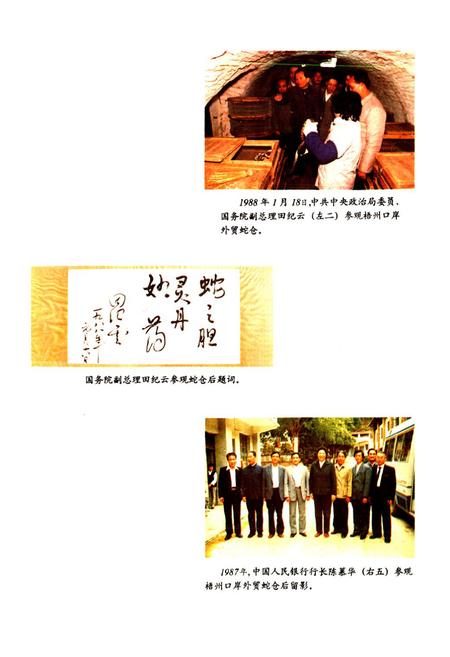 1988年1月18日,中共中央政治局委员、
国务院副总理田纪云（左二）参观梧州口岸
外贸蛇仓。
蛇之胆
灵丹
妙药
田纪云
一九八八年一
国务院副总理田纪云参观蛇仓后题词。
1987年,中国人民银行行长陈慕华（右五）参观
梧州口岸外贸蛇仓后留影。